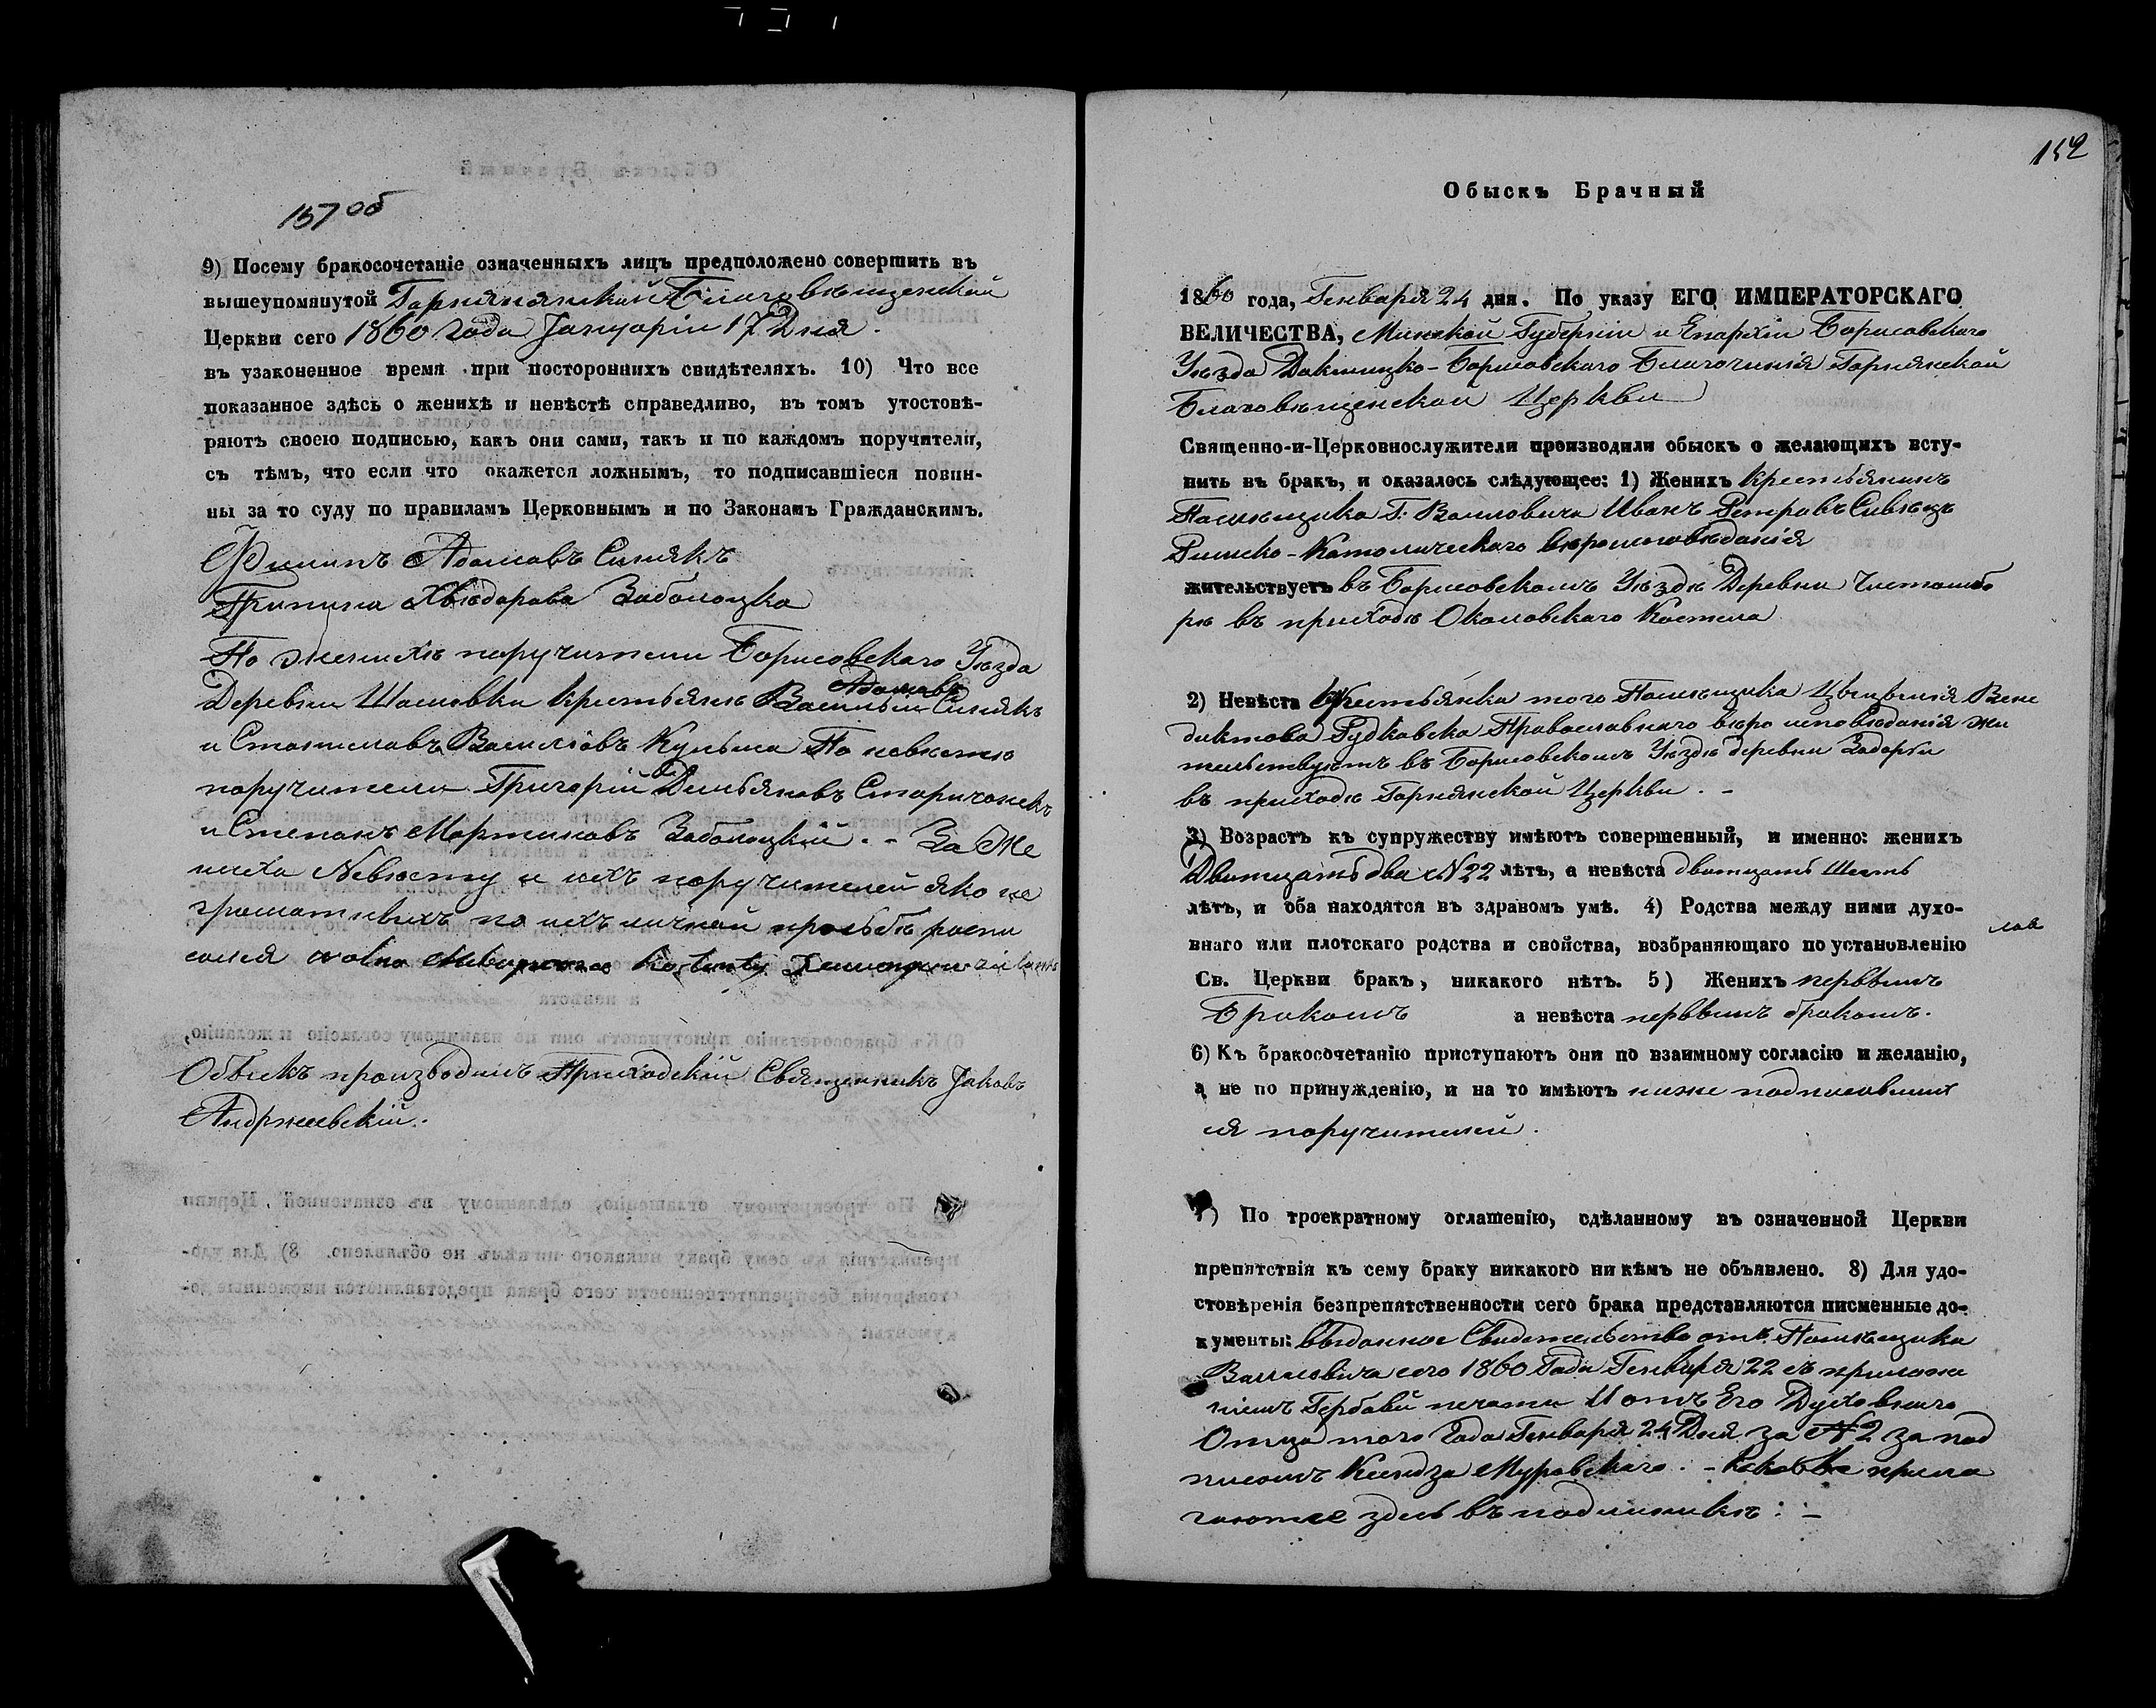 157 об
9) Посему бракосочетаніе означенныхъ лицъ предположено совершить въ
вышеупомянутой Горнянской Благовѣщенской
Церкви сего 1860 года Januaрiи 17 Дня.
въ узаконенное время при постороннихъ свидѣтеляхъ. 10) Что все
показанное здѣсь о женихѣ и невѣстѣ справедливо, въ томъ утостовѣ-
ряютъ своею подписью, какъ они сами, такъ и по каждомъ поручители,
съ тѣмъ, что если что окажется ложнымъ, то подписавшіеся повин-
ны за то суду по правиламъ Церковнымъ и по Законамъ Гражданскимъ.
Филипъ Адамовъ Синякъ
Хвѣдорова Заболоцка
По женихѣ поручители Борисовскаго Уѣзда
Деревни Шамовки крестьяне Василій Синякъ
и Станиславъ Василіовъ Кульма По невѣстѣ
поручители Григорій Демьяновъ Старичонекъ
и Степанъ Мартиновъ Заболоцкій. - За Же
ниха Невѣсту и ихъ поручителей яко не
грамотныхъ по ихъ личной прозьбѣ распи
сался
Обыскъ производилъ Приходскій Священникъ Јаковъ
Андржеевскій.
152
Обыскъ Брачный
1860 года, Генваря 24 дня. По указу ЕГО ИМПЕРАТОРСКАГО
ВЕЛИЧЕСТВА, Минской Губерніи и Епархіи Борисовскаго
Уѣзда Докшицко-Борисовскаго Благочинія Горнянской
Благовѣщенской Церкви
Священно-и-Церковнослужители производили обыскъ о желающихъ всту-
пить въ бракъ, и оказалось слѣдующее: 1) Женихъ крестьянинъ
Помѣщика Г: Ваньковича Иванъ Петровъ Сивѣцъ
Римско-Католическаго вѣроисповѣданія
жительствуетъ въ Борисовскомъ Уѣздѣ Деревни Чистомбо
рѣ въ приходѣ Околовскаго Костела
2) Невѣста крестьянка того Помѣщика Вене
диктова Рудковска Православнаго вѣро исповѣданія жи
тельствуетъ въ Борисовскомъ Уѣздѣ деревни Задорьи
въ приходѣ Горнянской Церкви. -
3) Возрастъ къ супружеству имѣютъ совершенный, и именно: женихъ
Дватцать два N 22 лѣтъ, а невѣста дватцать Шесть
лѣтъ, и оба находятся въ здравомъ умѣ. 4) Родства между ними духо-
внаго или плотскаго родства и свойства, возбраняющаго по установленію
Св. Церкви бракъ, никакого нѣтъ. 5) Женихъ первымъ
Бракомъ а невѣста первымъ бракомъ.
6) Къ бракосочетанію приступаютъ они по взаимному согласію и желанію,
а не по принужденію, и на то имѣютъ ниже подписавших
ся поручителей.
7) По троекратному оглашенію, сдѣланному въ означенной Церкви
препятствія къ сему браку никакого ни кѣмъ не объявлено. 8) Для удо-
стовѣренія безпрепятственности сего брака представляются писменные до-
кументы: выданное Свидетельство отъ Помѣщика
Ваньковича сего 1860 Года Генваря 22 съ приложе
ніемъ Гербавой печати И отъ Его Духовнаго
Отца того Года Генваря 24 Дня за N 2 за под
писомъ Ксендза Муровскаго. - прила
гаются здесь въ подлинникѣ: -